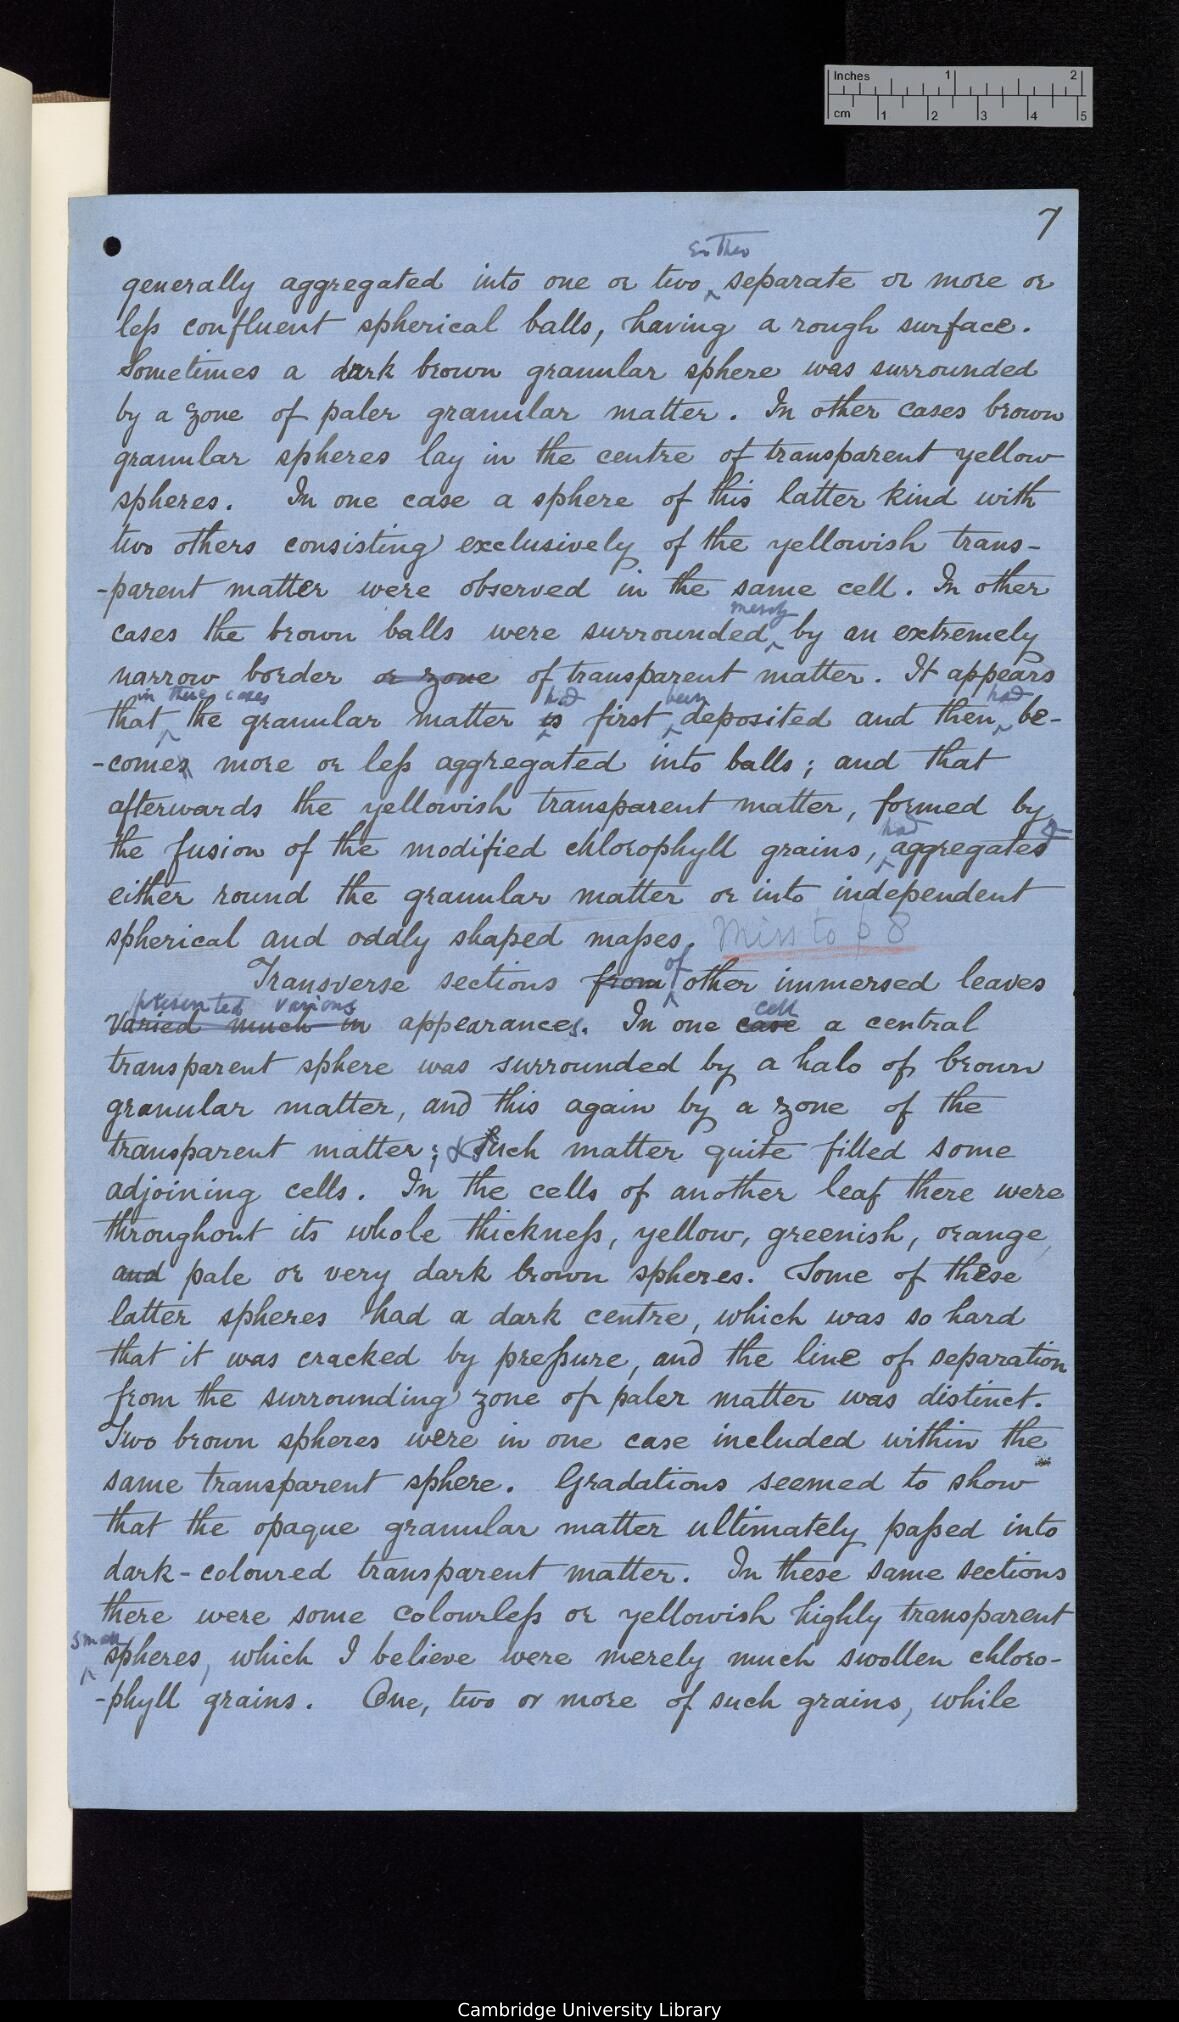 Inches 1 2
cm 1 2 3 4 5
7
either
generally aggregated into one or two separate or more or
less confluent spherical balls, having a rough surface.
Sometimes a dark brown granular sphere was surrounded
by a zone of paler granular matter. In other cases brown
granular spheres lay in the centre of transparent yellow
spheres. In one case a sphere of this latter kind with
two others consisting exclusively of the yellowish trans-
-parent matter were observed in the same cell. In other
merely
cases the brown balls were surrounded by an extremely
narrow border or zone of transparent matter. It appears
in these cases had been had
that the granular matter is first deposited and then be-
-comes more or less aggregated into balls; and that
afterwards the yellowish transparent matter, formed by
had
the fusion of the modified chlorophyll grains, aggregated
either round the granular matter or into independent
spherical and oddly shaped masses. Miss to p 8
of
Transverse sections from other immersed leaves
presented various cell
varied much in appearances. In one case a central
transparent sphere was surrounded by a halo of brown
granular matter, and this again by a zone of the
transparent matter; & such matter quite filled some
adjoining cells. In the cells of another leaf there were
throughout its whole thickness, yellow, greenish, orange,
and pale or very dark brown spheres. Some of these
latter spheres had a dark centre, which was so hard
that it was cracked by pressure, and the line of separation
from the surrounding zone of paler matter was distinct.
Two brown spheres were in one case included within the
same transparent sphere. Gradations seemed to show
that the opaque granular matter ultimately passed into
dark-coloured transparent matter. In these same sections
there were some colourless or yellowish highly transparent
small
spheres, which I believe were merely much swollen chloro-
-phyll grains. One, two or more of such grains, while
Cambridge University Library